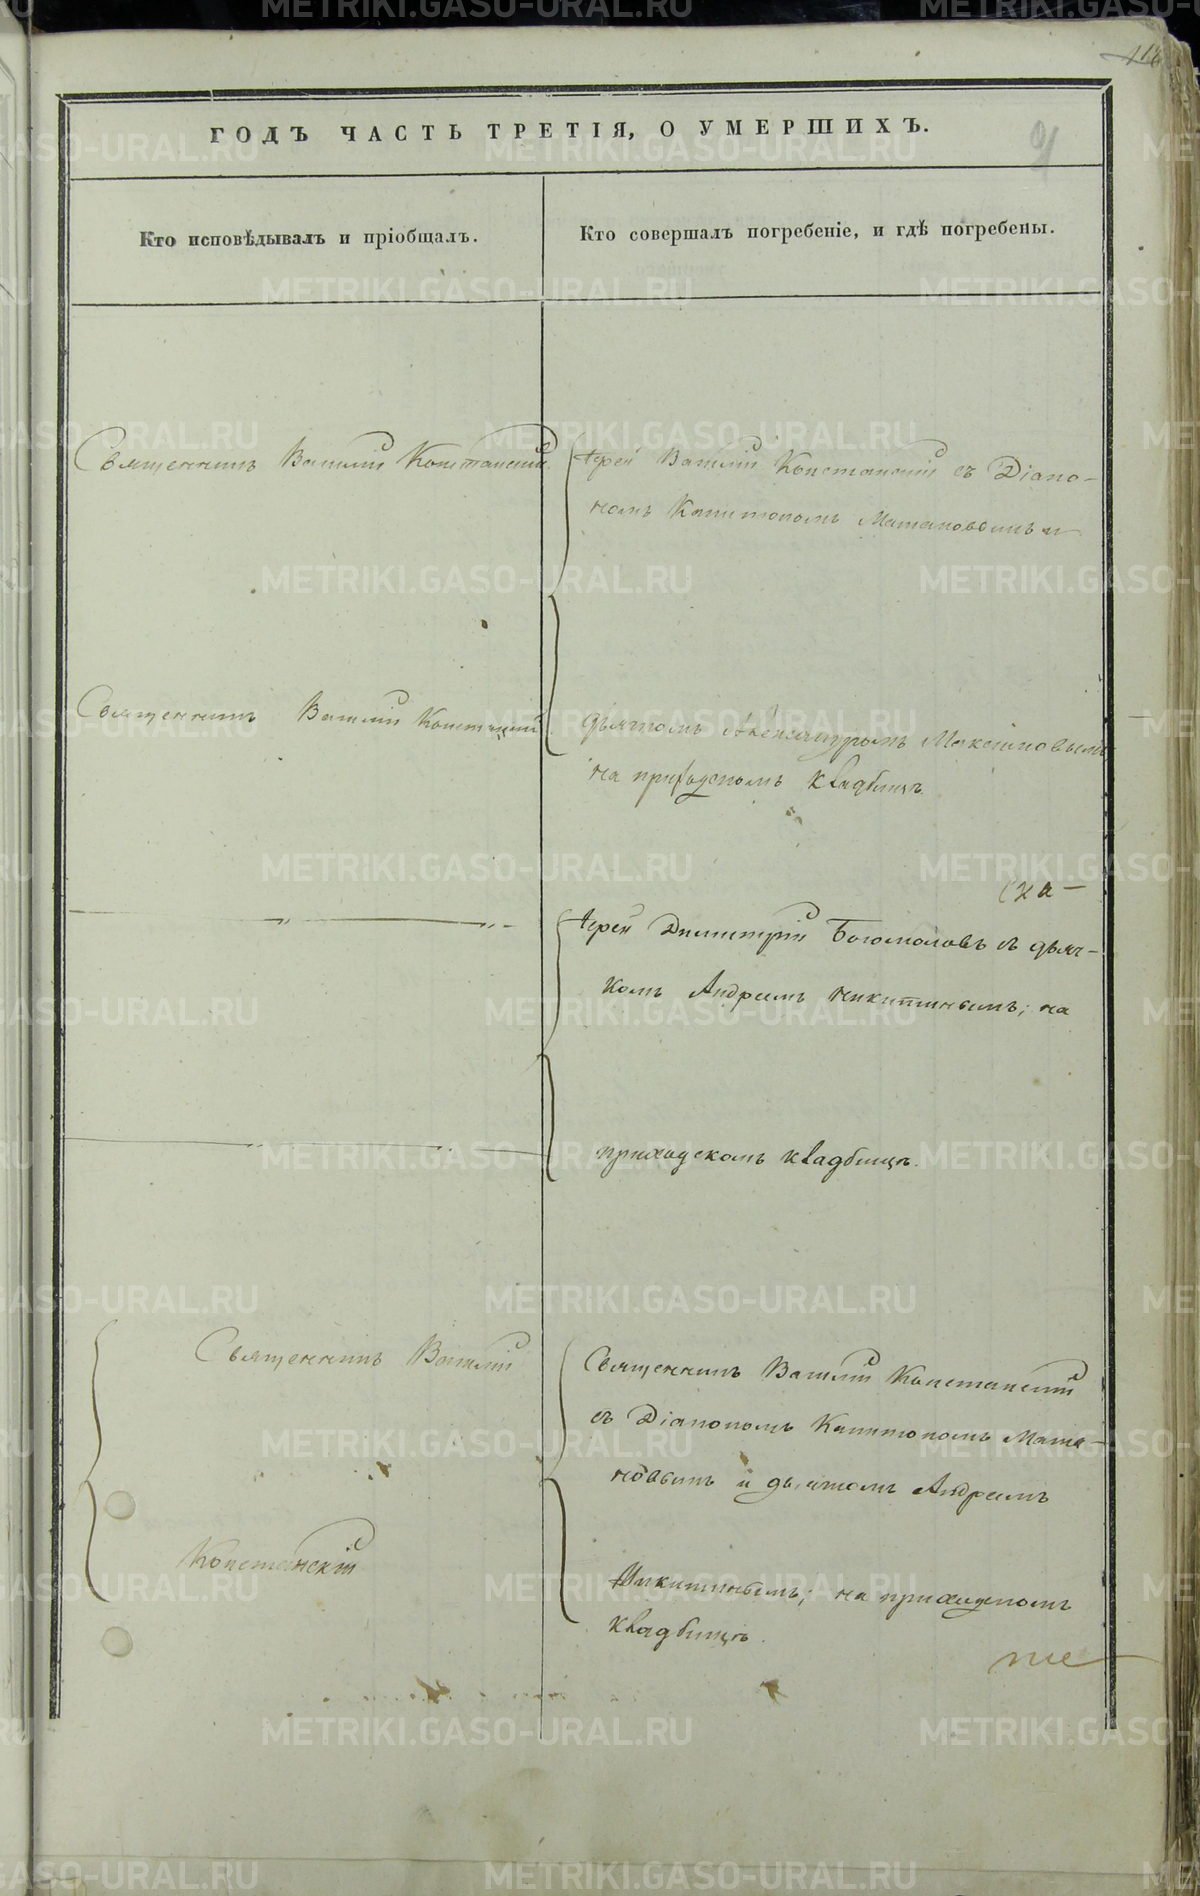 ГОДЪ ЧАСТЬ ТРЕТІЯ, О УМЕРШИХЪ.
Кто исповѣдывалъ и пріобщалъ.
Кто совершалъ погребеніе, и гдѣ погребены.
Священникъ Василій Констанскій.
Іерей Василій Констанскій съ Діако-
номъ Капитономъ Матановымъ и
Священникъ Василій Констанскій
дьячкомъ Александромъ Максимовымъ
на приходскомъ кладбищѣ
Іерей Димитрій Богомоловъ съ дьяч-
комъ Андреемъ Никитинымъ; на
приходскомъ кладбищѣ.
Священникъ Василій
Констанскій
Священникъ Василій Констанскій
съ Діакономъ Капитономъ Мата-
новымъ и дьячкомъ Андреемъ
Никитинымъ; на приходскомъ
кладбищѣ.
METRIKI.GASO-URAL.RU